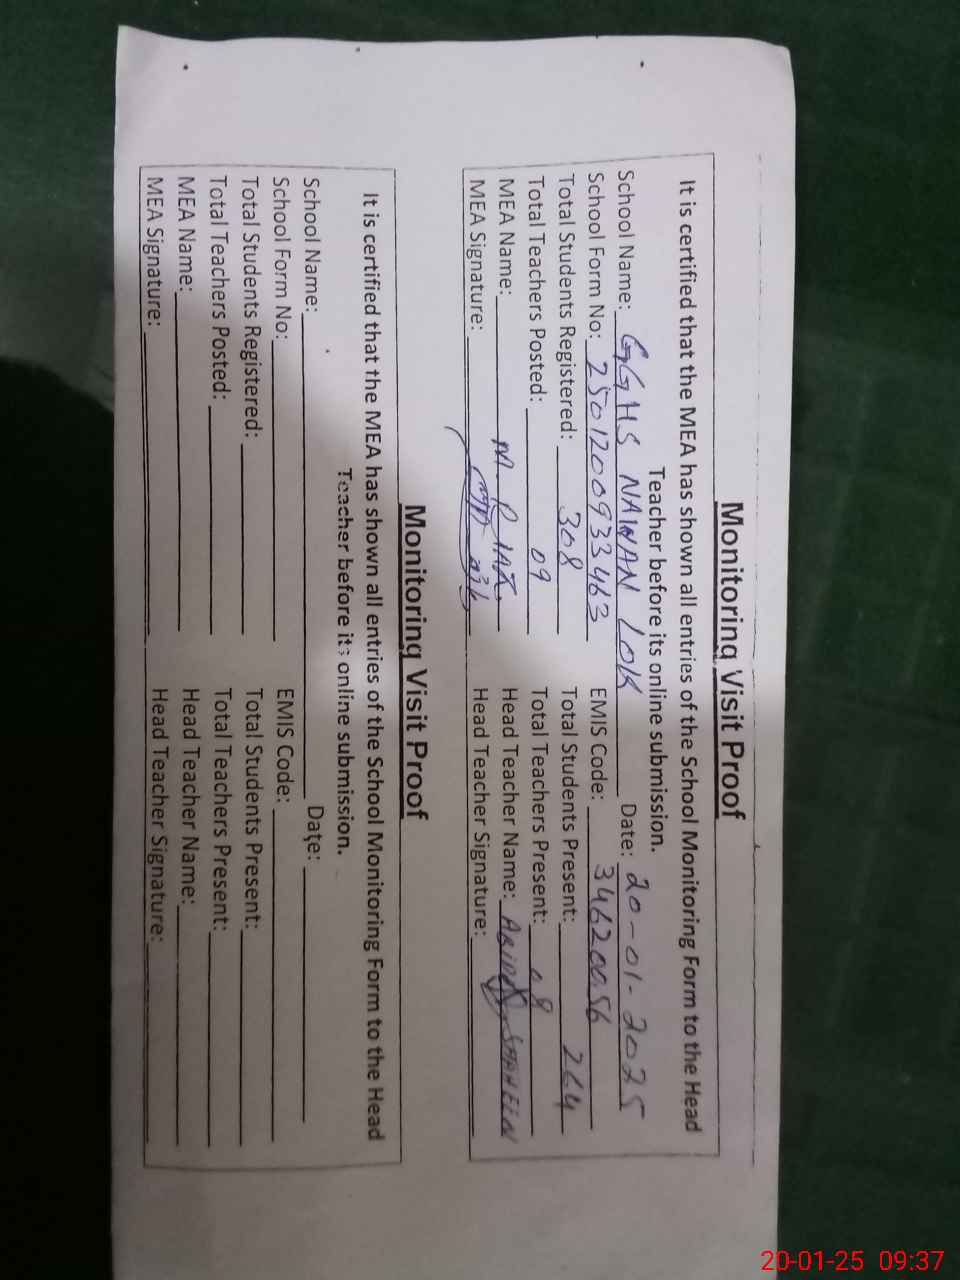 Monitoring Visit Proof
It is certified that the MEA has shown all entries of the School Monitoring Form to the Head
Teacher before its online submission.
School Name: GGHS NAWAN LOK Date: 20-01-2025
School Form No: 2501200933463 EMIS Code: 34620056
Total Students Registered: 308 Total Students Present: 264
Total Teachers Posted: 09 Total Teachers Present: 08
MEA Name: M. RIAZ Head Teacher Name: ABIDA SHAHEEN
MEA Signature: Head Teacher Signature:
Monitoring Visit Proof
It is certified that the MEA has shown all entries of the School Monitoring Form to the Head
Teacher before its online submission.
School Name: Date:
School Form No: EMIS Code:
Total Students Registered: Total Students Present:
Total Teachers Posted: Total Teachers Present:
MEA Name: Head Teacher Name:
MEA Signature: Head Teacher Signature:
20-01-25 09:37